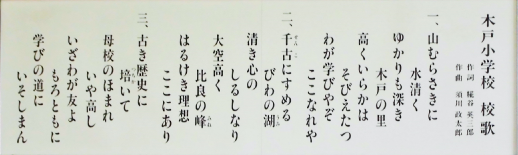 木戸小学校 校歌
作詞 糀谷 英三郎
作曲 須川 政太郎
一、山むらさきに
水清く
ゆかりも深き
木戸の里
高くいらかは
そびえたつ
わが学びやぞ
ここなれや
二、千古にすめる
びわの湖
清き心の
しるしなり
大空高く
比良の峰
はるけき理想
ここにあり
三、古き歴史に
培いて
母校のほまれ
いや高し
いざわが友よ
もろともに
学びの道に
いそしまん